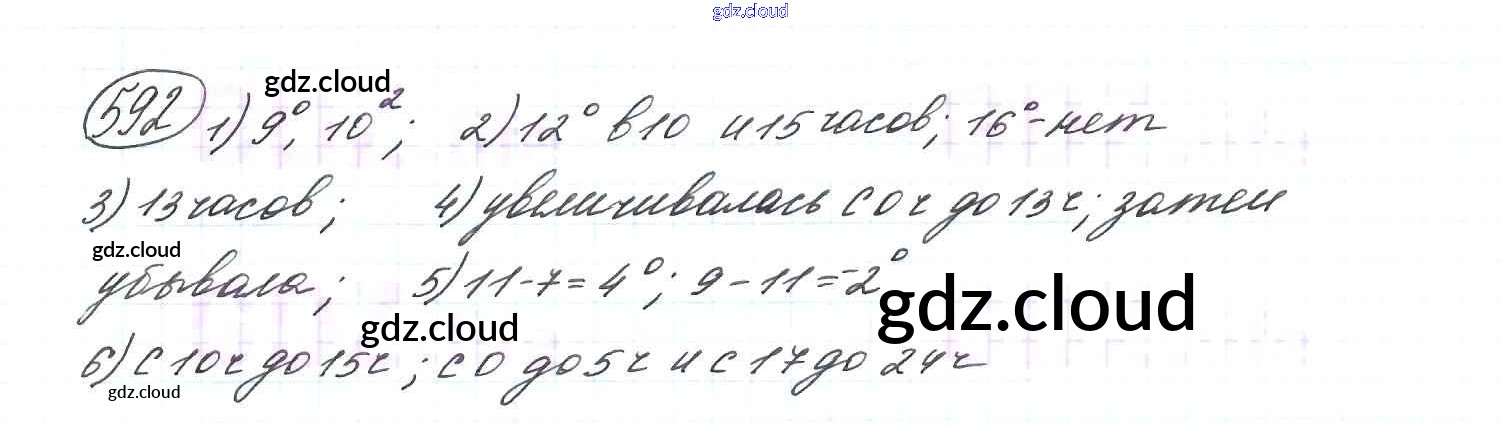 gdz.cloud
gdz.cloud
592 1) 9°, 10²; 2) 12° в 10 и 15 часов; 16° - нет
3) 13 часов; 4) увеличивалась с 0 ч до 13 ч; затем
gdz.cloud
убывала; 5) 11 - 7 = 4°; 9 - 11 = -2°
gdz.cloud
gdz.cloud
6) с 10 ч до 15 ч; с 0 до 5 ч и с 17 до 24 ч
gdz.cloud